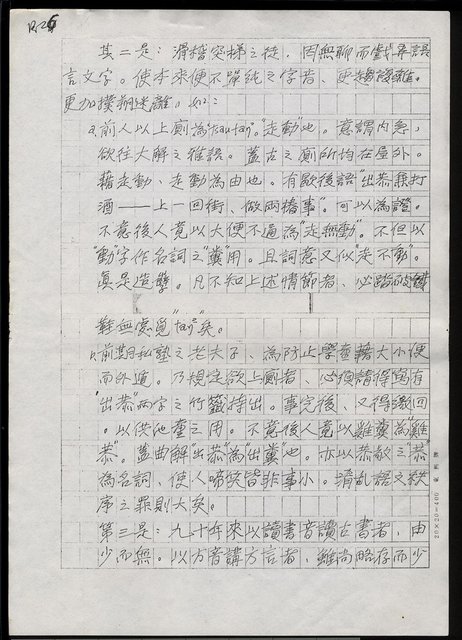 R-26
其二是：滑稽突梯之徒，因無聊而戲弄語
言文字。使本來便不單純之字音、更趨複雜。
更加撲朔迷離。如：
a.前人以上廁為"走動"也。意謂內急，
欲往大解之雅語。蓋古之廁所均在屋外。
藉走動、走動為由也。有歇後語"出恭兼打
酒——上一回街、做兩樁事"。可以為證。
不意後人竟以大便不通為"走無動"。不但以
"動"字作名詞之"糞"用。且詞意又似"走不動"。
真是造孽。凡不知上述情節者、必踏破鐵
鞋無處覓 矣。
b.前期私塾之老夫子、為防止學童藉大小便
而外遁。乃規定欲上廁者、必須請得寫有
"出恭"兩字之竹籤持出。事完後、又得繳回
，以供他童之用。不意後人竟以雞糞為"雞
恭"。蓋曲解"出恭"為"出糞"也。亦以恭敬之"恭"
為名詞、使人啼笑皆非事小。淆亂語文秩
序之罪則大矣。
第三是：九十年來以讀書音讀古書者、由
少而無。以方音講方言者、雖尚略存而少
20×20=400